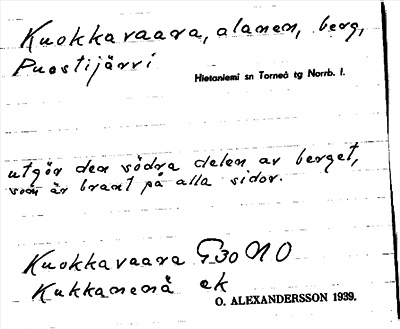 Kuokkavaara, alanen, berg,
Puostijärvi
Hietaniemi sn Torneå tg Norrb. l.
utgör den södra delen av berget,
som är brant på alla sidor.
Kuokkavaara G30 NO
Kukkanenä ek
O. ALEXANDERSSON 1939.